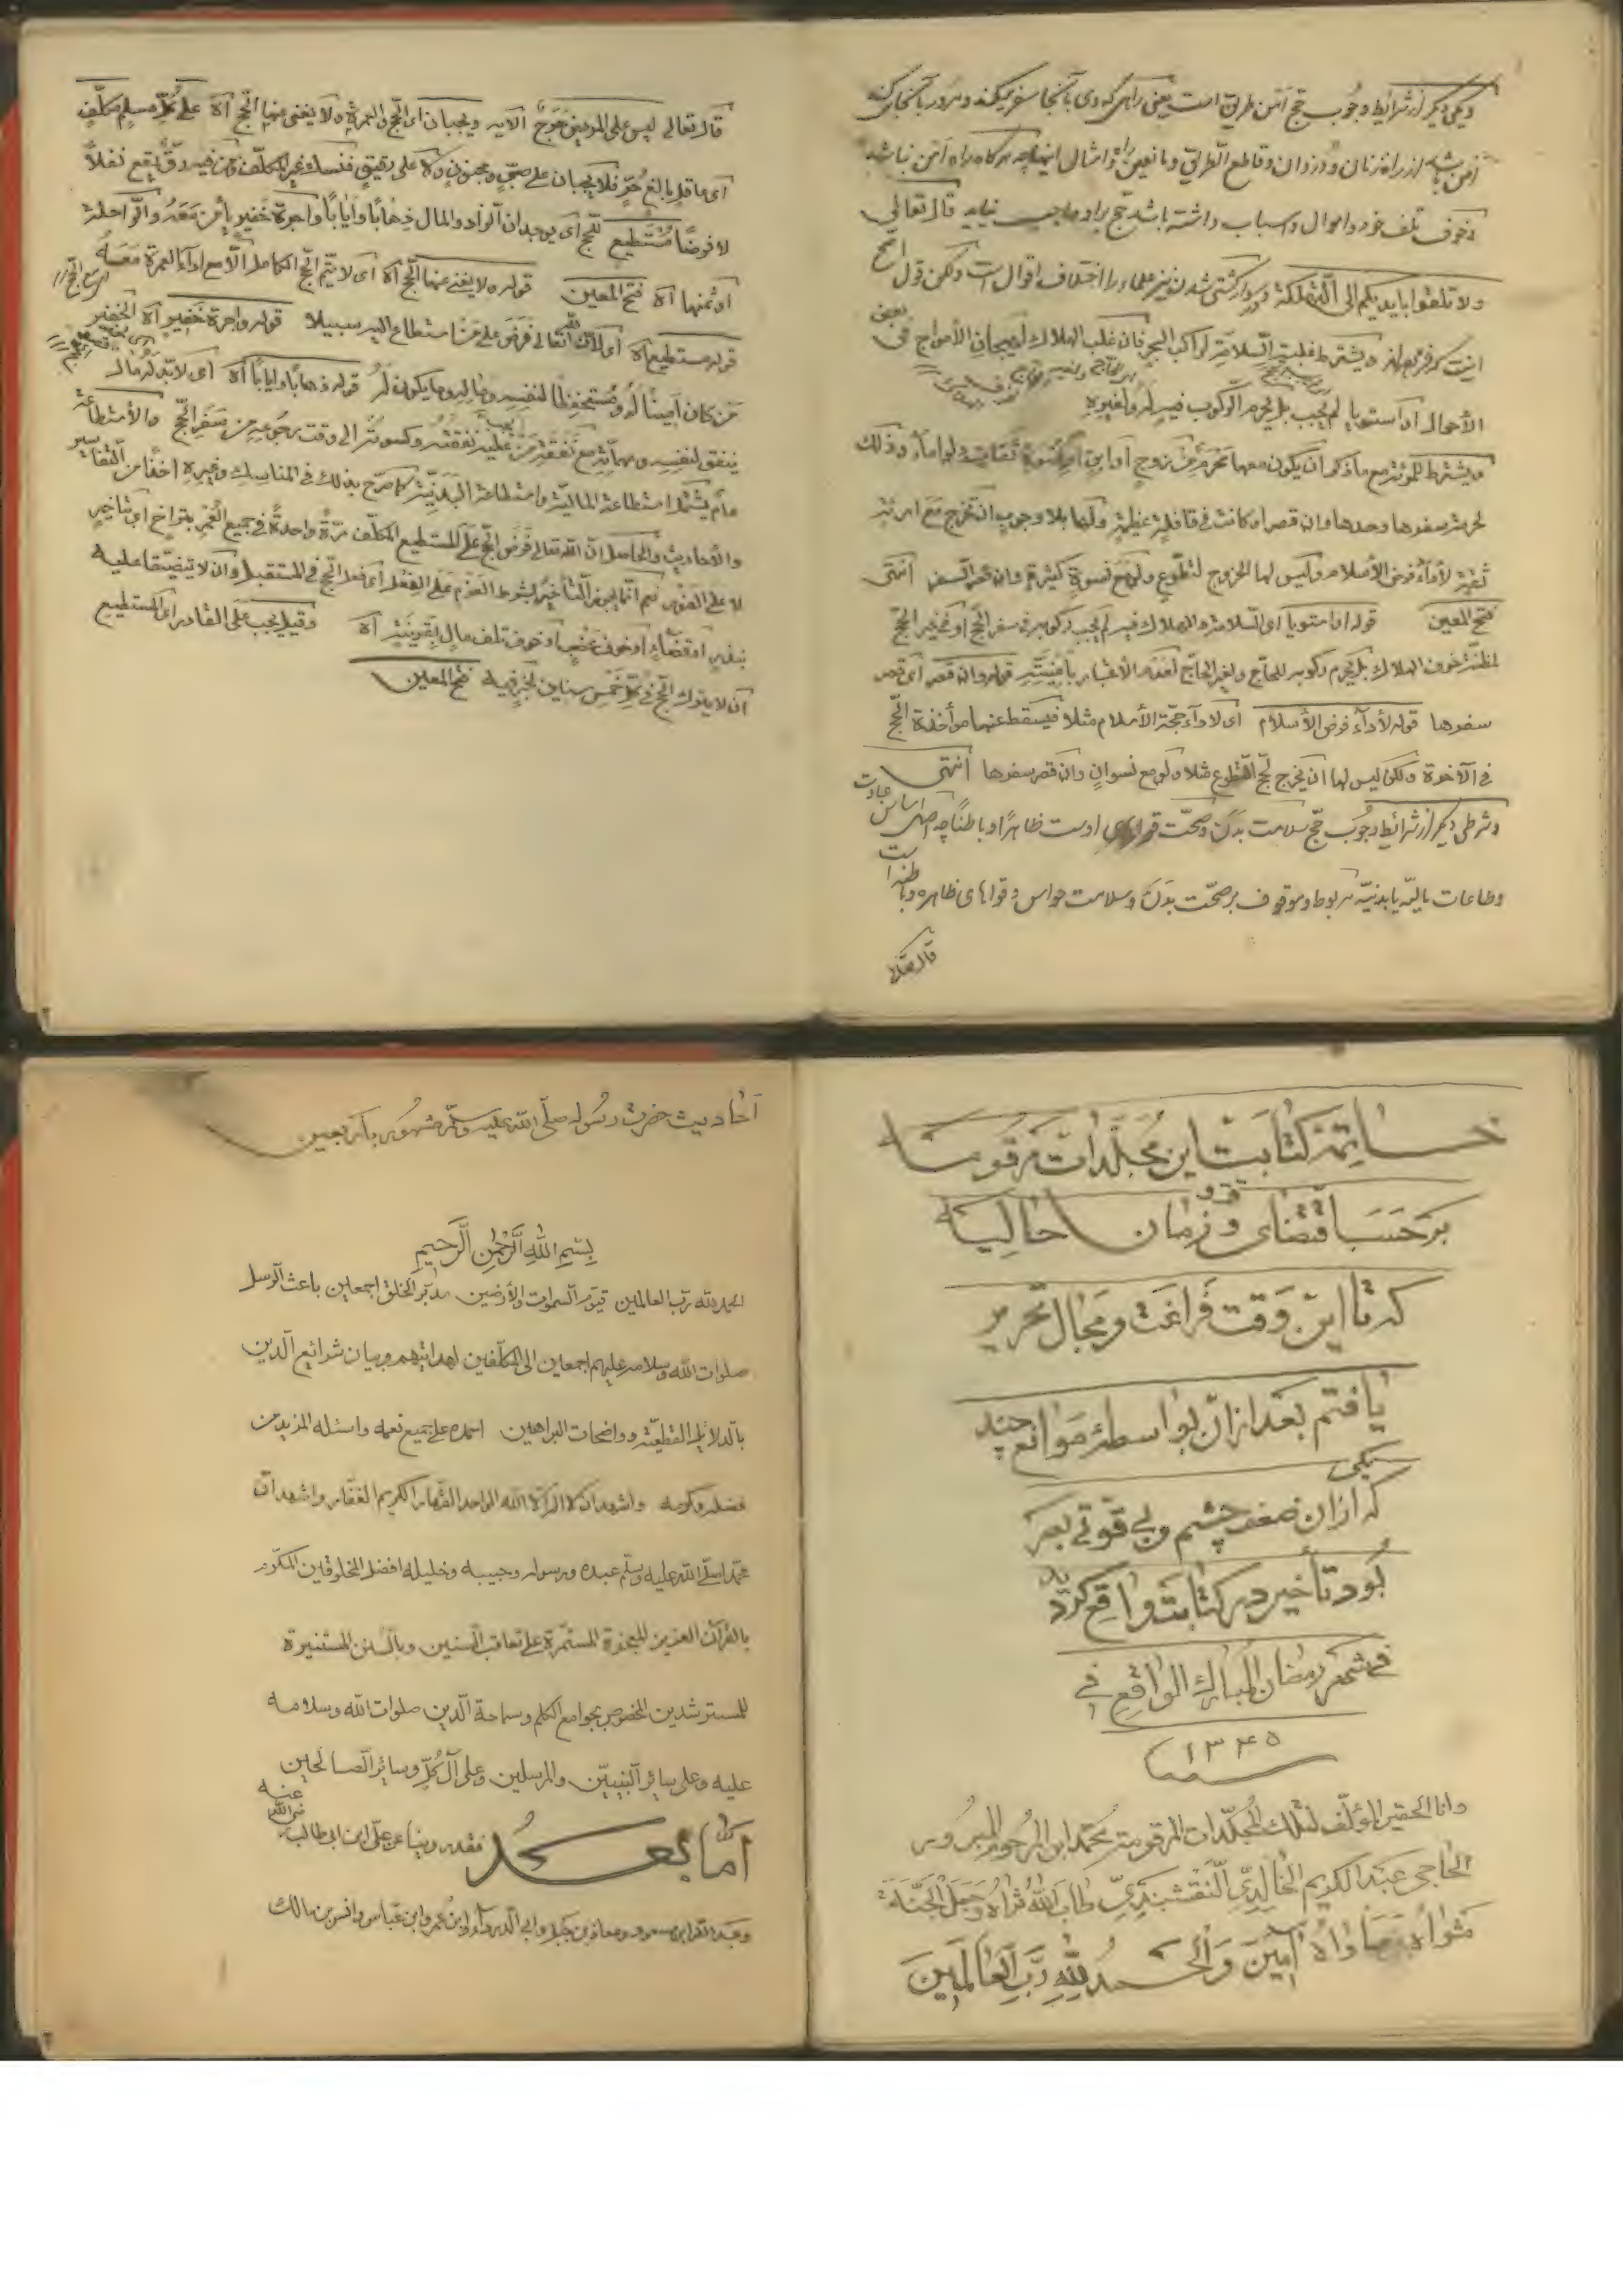 ویکی دیگر از شرائط وجوب حج امن طریق است یعنی راهی که وی بآنجا سفر میکند ومرور بآنجا میکند
امن باشد از راهزنان ودزدان وقاطع الطریق ومانعین راه وامثال اینها چه هرگاه راه امن نباشد
وخوف تلف خود واموال واسباب داشته باشد حج براو واجب نیاید قال تعالی
ولا تلقوا بایدیکم الی التهلکة ودر سوار کشتی شدن نیز علماء را اختلاف اقوال است ولکن قول اصح
اینست که ویشترط غلبة السلامة لراکب البحر فان غلب الهلاک لهیجان الأمواج فی بعض
الأحوال او استویا لم یجب بل یحرم الرکوب فیه له ولغیره
ویشترط للمرئة مع ما ذکر ان یکون معها محرم او زوج او نسوة ثقات ولو اماء وذلک
لحرمة سفرها وحدها وان قصر او کانت فی قافلة عظیمة ولها بلا وجوب ان تخرج مع امرئة
ثقة لأداء فرض الأسلام ولیس لها الخروج لتطوع ولو مع نسوة کثیرة وان قصر السفر انتهی
فتح المعین قوله او استویا ای السلامة والهلاک فیه لم یجب رکوبه فی سفر الحج او غیر الحج
لمظنة خوف الهلاک بل یحرم رکوبه للحاج ولغیر الحاج قوله وان قصر ای قصر
سفرها قوله لأداء فرض الأسلام ای لأداء حجة الأسلام مثلا فیسقط عنها مؤاخذة الحج
فی الآخرة ولکن لیس لها ان یخرج لحج التطوع مثلا ولو مع نسوان وان قصر سفرها انتهی
وشرطی دیگر از شرائط وجوب حج سلامت بدن وصحت قوای اوست ظاهرا وباطنا چه اصل اساس عبادت
وطاعات مالیه یا بدنیه مربوط وموقوف برصحت بدن وسلامت حواس وقواهای ظاهره وباطنه است
قال تعالی
قال تعالی لیس علی المریض حرج الآیه ویجبان ای الحج والعمرة ولا یغنی عنها الحج اه علی کل مسلم مکلف
ای عاقل بالغ حر فلا یجبان علی صبی ومجنون ولا علی رقیق فنسک غیر المکلف ومن فیه رق یقع نفلا
لا فرضا مستطیع للحج ای یوجدان الزاد والمال ذهابا وایابا واجرة خفیر یأمن معه والراحلة
او ثمنها اه فتح المعین قوله ولا یغنی عنها الحج اه ای لا یتم الحج الکامل الا مع اداء العمرة معه
قوله مستطیع اه ای لأن الله تعالی فرض علی من استطاع الیه سبیلا قوله واجرة خفیر اه الخفیر
من کان امینا له ومستحفظا لنفسه وماله وما یکون له قوله ذهابا وایابا اه ای لا بد له مال
ینفق لنفسه مع نفقة من علیه نفقته وکسوته الی وقت رجوعه من سفر الحج والأستطاعة
عام یشمل استطاعة المالیة واستطاعة البدنیة کما صرح بذلک فی المناسک وغیره اخذا من التفاسیر
والأحادیث والحاصل ان الله تعالی فرض الحج علی المستطیع المکلف مرة واحدة فی جمیع العمر بتراخ ای تأخیر
لا علی الفور نعم انما یجوز التأخیر بشرط العزم علی الفعل ای فعل الحج فی المستقبل وان لا یتضیقا علیه
بنذر او قضاء او خوف عضب او خوف تلف مال بقرینة اه وقیل یجب علی القادر ای المستطیع
ان لا یترک الحج فی کل خمس سنین لخبر فیه فتح المعین
خاتمه کتابت این مجلدات مرقومه
برحسب اقتضای وقت وزمان حالیه
که تا این وقت فراغت ومجال تحریر
یافتم بعد از ان بواسطه موانع چند
که یکی از ان ضعف چشم وبی قوتی بصر
بود تأخیر در کتابت واقع کردید
فی شهر رمضان المبارک الواقع فی
۱۳۴۵
وانا الحقیر المؤلف لتلک المجلدات المرقومة محمد ابن المرحوم المبرور
الحاجی عبد الکریم الخالدی النقشبندی طاب الله ثراه وجعل الجنة
مثواه ومأواه آمین والحمد لله رب العالمین
احادیث حضرت رسول صلی الله علیه وسلم مشهور باربعین
بسم الله الرحمن الرحیم
الحمد لله رب العالمین قیوم السموات والأرضین مدبر الخلق اجمعین باعث الرسل
صلوات الله وسلامه علیهم اجمعین الی المکلفین لهدایتهم وبیان شرائع الدین
بالدلائل القطعیة وواضحات البراهین احمده علی جمیع نعمه واسئله المزید من
فضله وکرمه واشهد ان لا اله الا الله الواحد القهار الکریم الغفار واشهد ان
محمدا صلی الله علیه وسلم عبده ورسوله وحبیبه وخلیله افضل المخلوقین المکرم
بالقرآن العزیز المعجزة المستمرة علی تعاقب السنین وبالسنن المستنیرة
للمسترشدین المخصوص بجوامع الکلم وسماحة الدین صلوات الله وسلامه
علیه وعلی سائر النبیین والمرسلین وعلی آل کل وسائر الصالحین
اما بعد فقد روینا عن علی ابن ابی طالب رضی الله عنه
وعبد الله ابن مسعود ومعاذ بن جبل وابی الدرداء وابن عمر وابن عباس وانس بن مالک